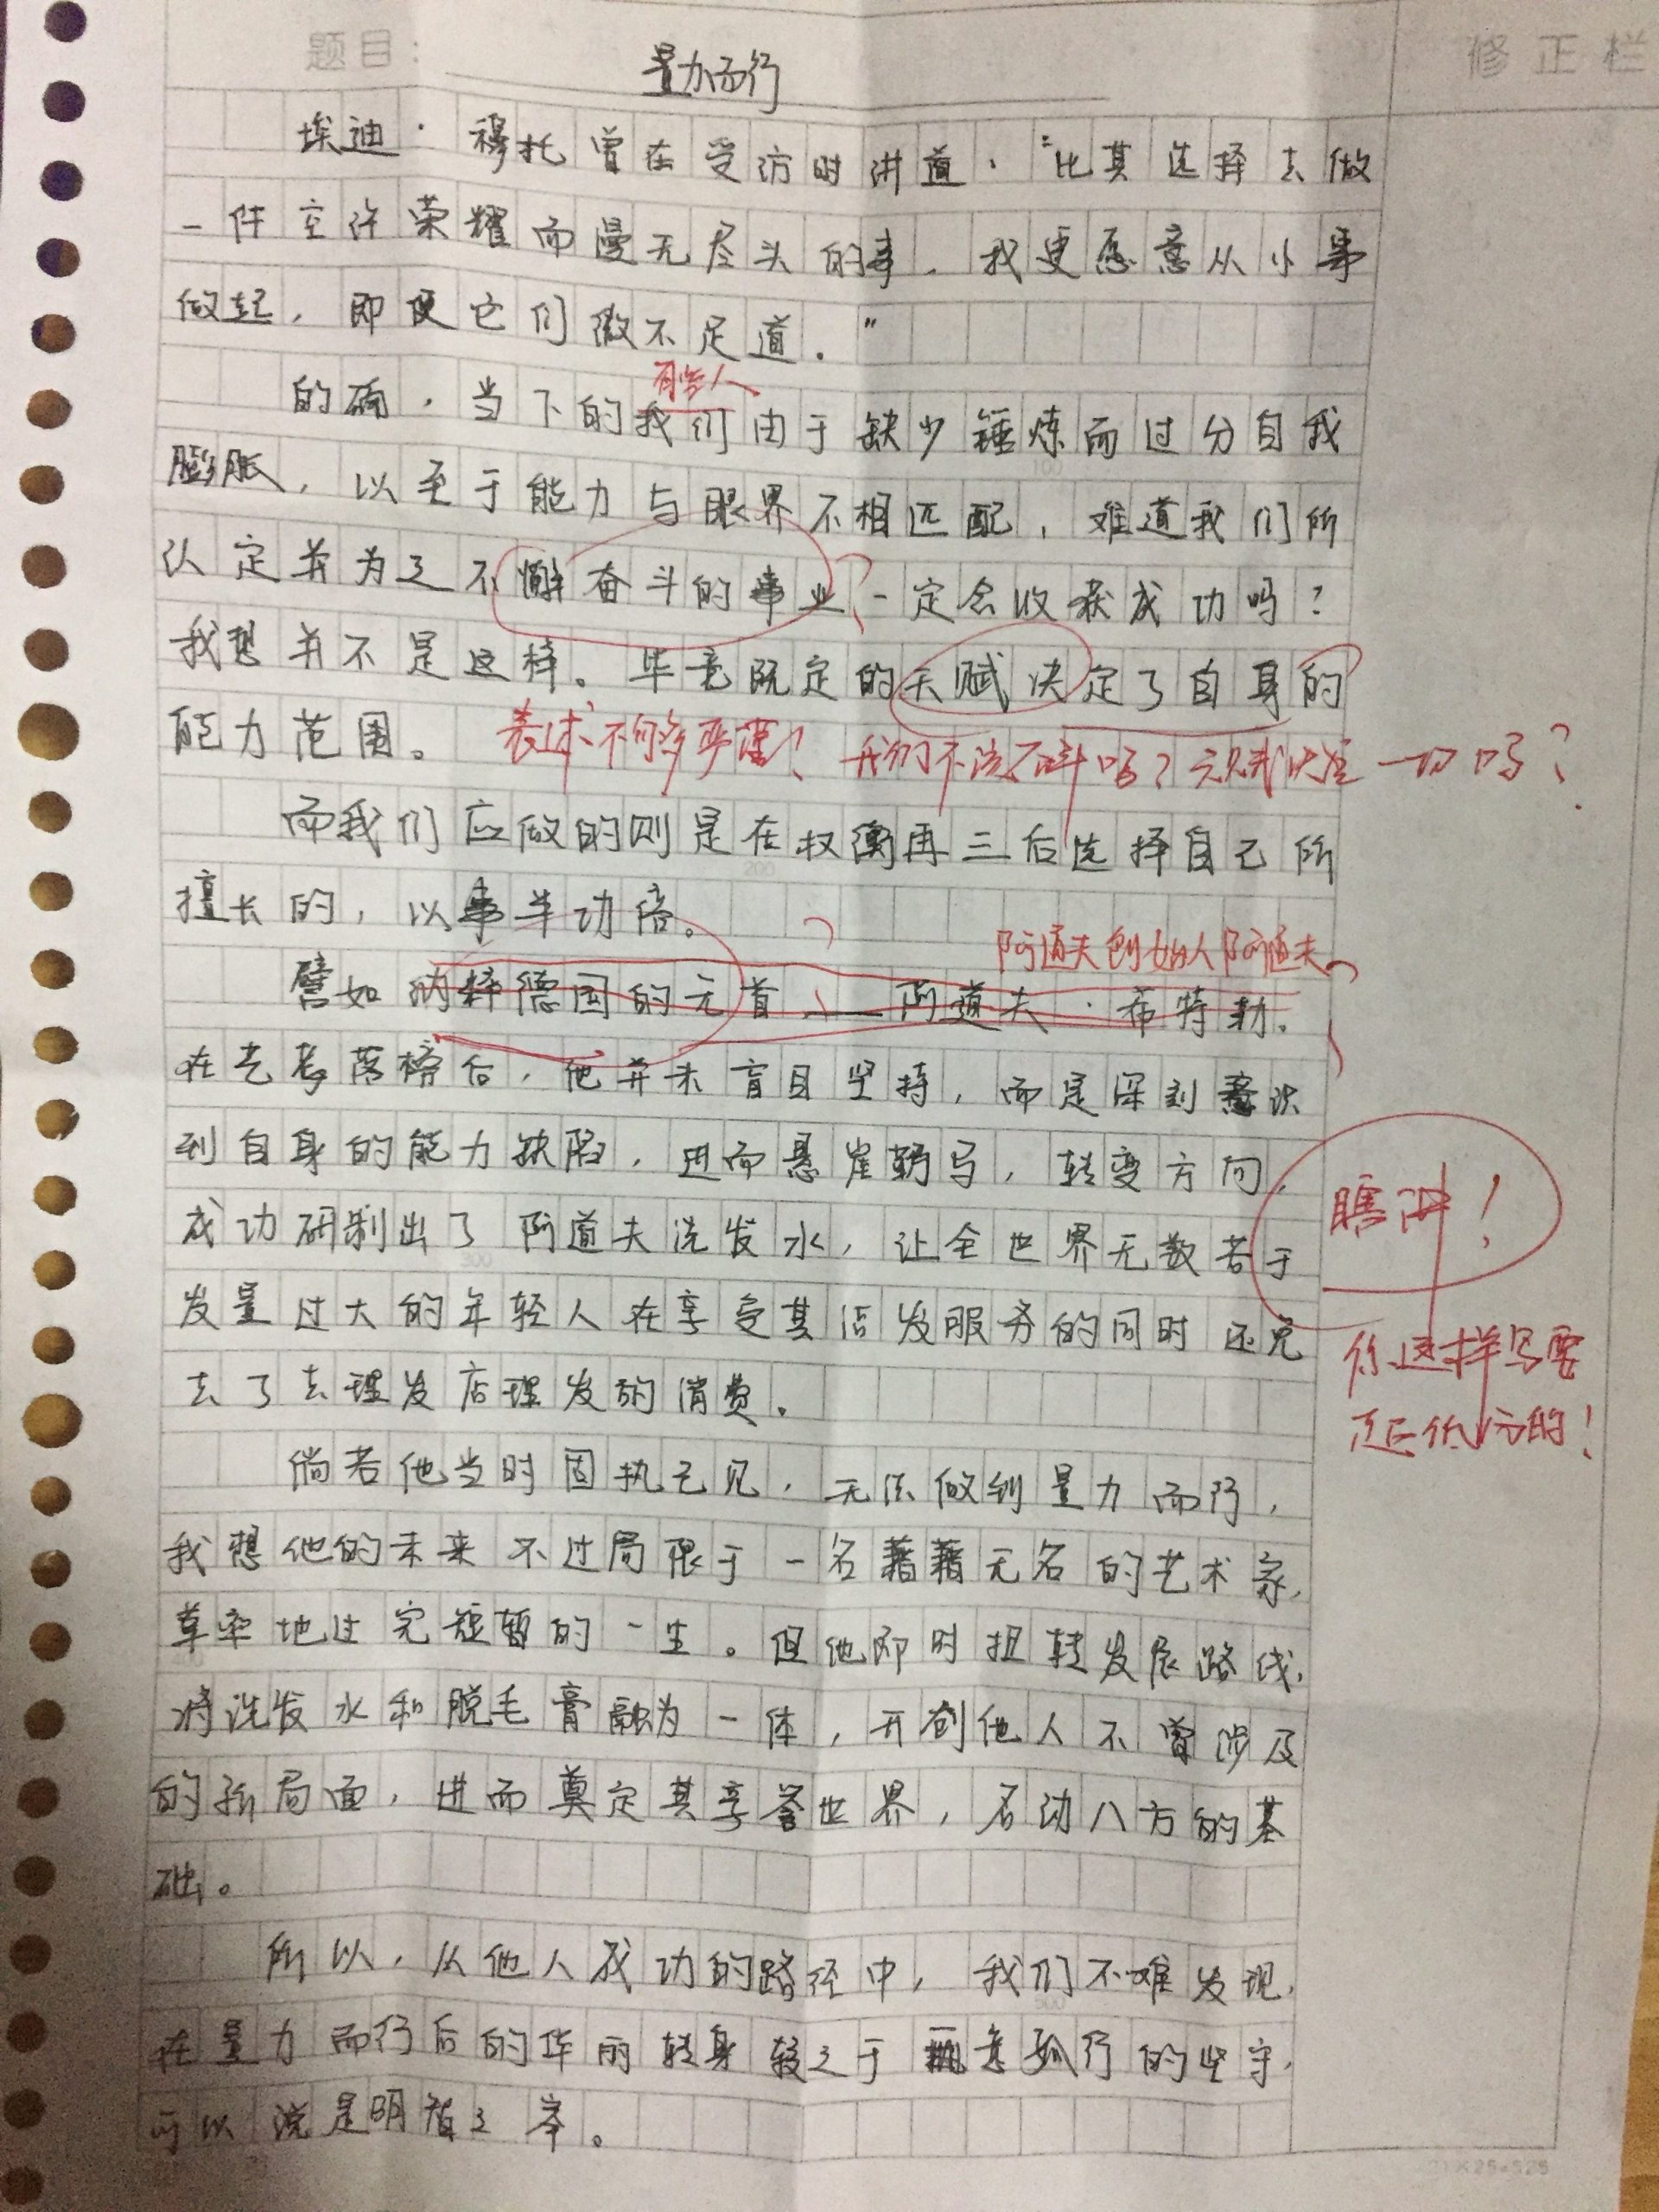 题目：
量力而行
修正栏
埃迪·穆托曾在受访时讲道，“比其选择去做
一件空许荣耀而漫无尽头的事，我更愿意从小事
做起，即便它们微不足道。”
有些人
的确，当下的我们由于缺少锤炼而过分自我
膨胀，以至于能力与眼界不相匹配，难道我们所
认定并为之不懈奋斗的事业一定会收获成功吗？
我想并不是这样。毕竟既定的天赋决定了自身的
能力范围。
表述不够严谨！我们不该奋斗吗？天赋决定一切吗？
而我们应做的则是在权衡再三后选择自己所
擅长的，以事半功倍。
阿道夫创始人阿道夫
譬如纳粹德国的元首——阿道夫·希特勒。
在艺考落榜后，他并未盲目坚持，而是深刻意识
到自身的能力缺陷，进而悬崖勒马，转变方向，
成功研制出了阿道夫洗发水，让全世界无数苦于
发量过大的年轻人在享受其洁发服务的同时还免
去了去理发店理发的消费。
瞎讲！
你这样写要
低分的！
倘若他当时固执己见，无法做到量力而行，
我想他的未来不过局限于一名藉藉无名的艺术家，
草率地过完短暂的一生。但他即时扭转发展路线，
将洗发水和脱毛膏融为一体，开创他人不曾涉及
的新局面，进而奠定其享誉世界，名动八方的基
础。
所以，从他人成功的路径中，我们不难发现，
在量力而行后的华丽转身较之于一意孤行的坚守，
可以说是明智之举。
100
200
300
500